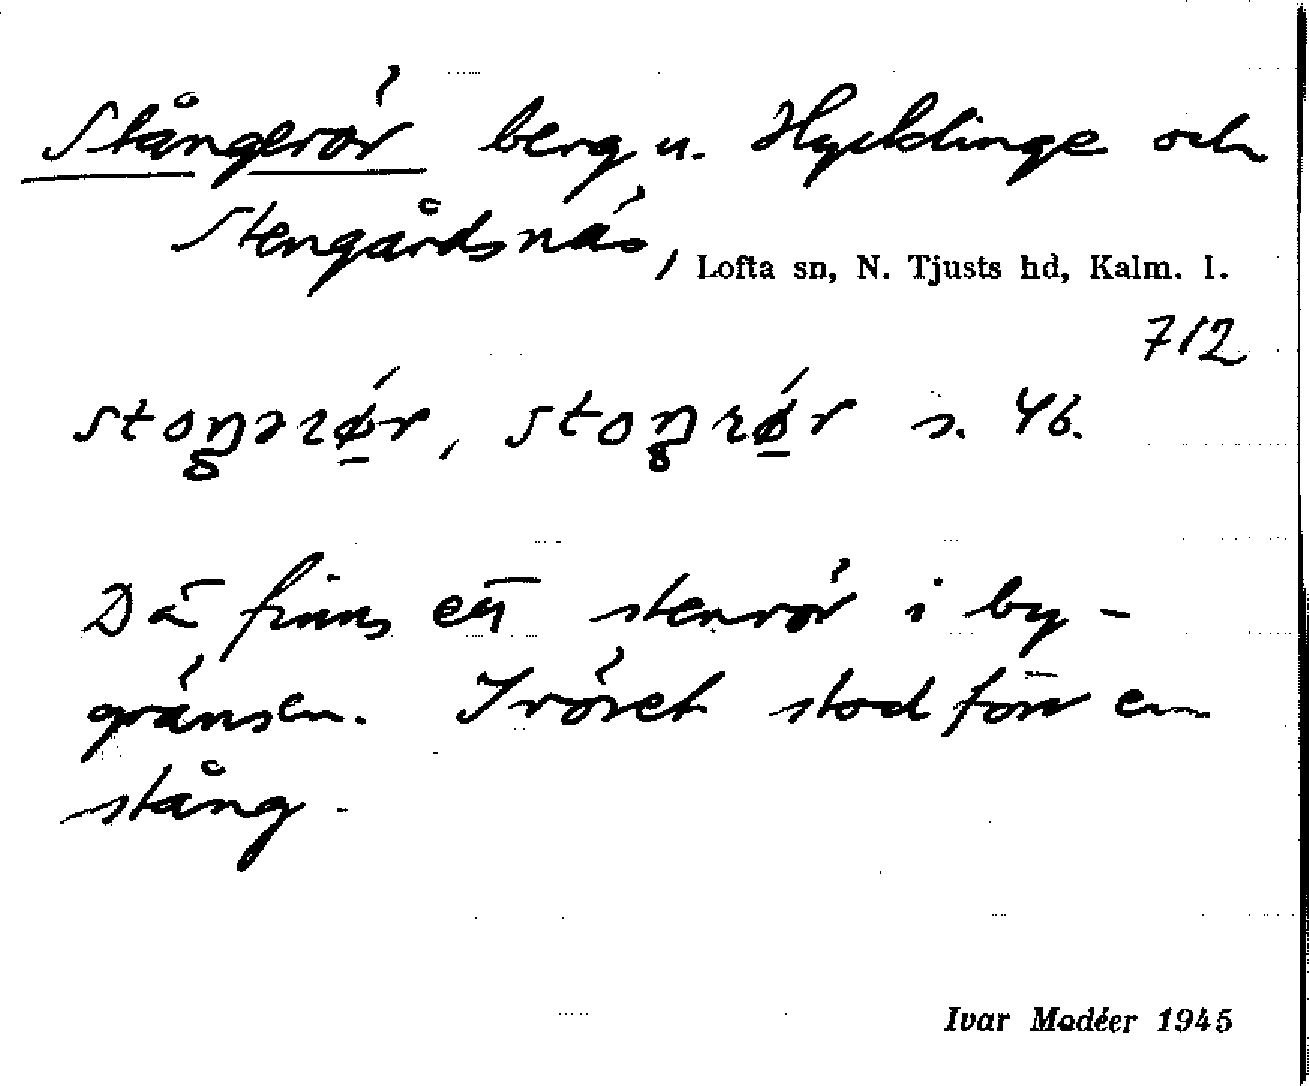 Stångerör berg u. Hycklinge och
Stengårdsnäs, Lofta sn, N. Tjusts hd, Kalm. l.
712
stoŋərǿ̱r, stoŋrǿ̱r s. 46.
Dä finns ett stenrör i by-
gränsen. I röret stod förr en
stång.
Ivar Modéer 1945